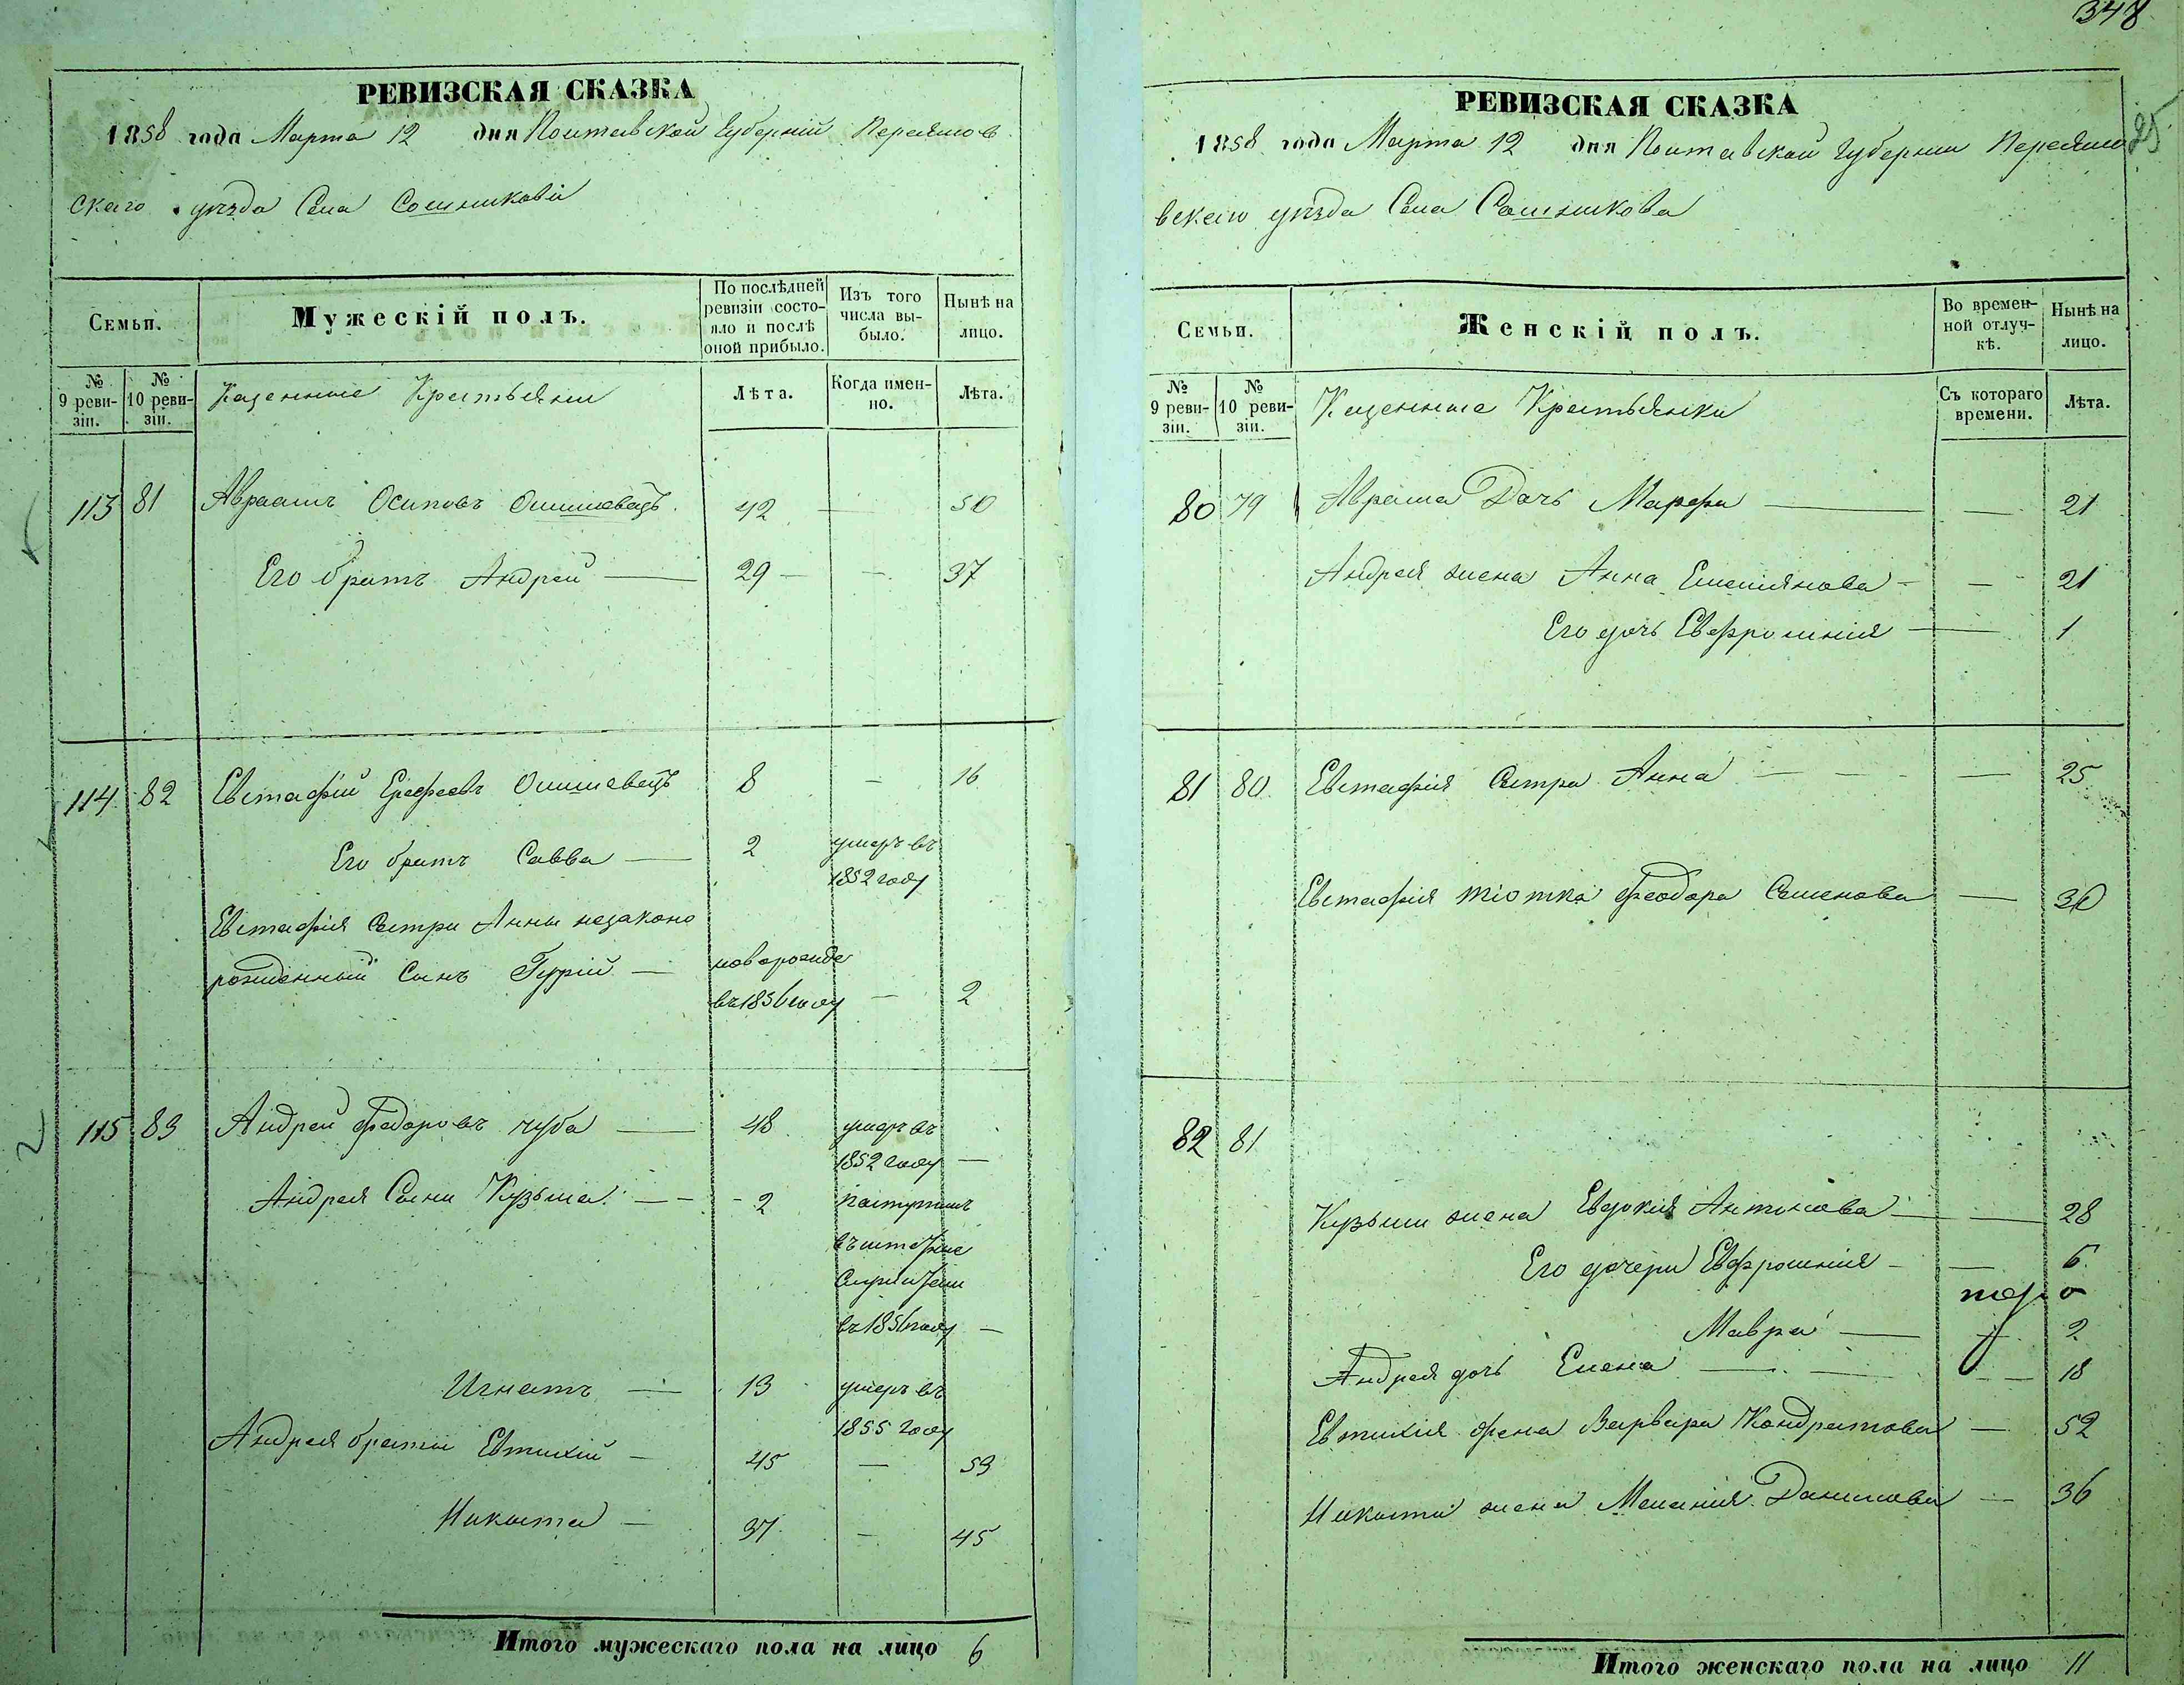 348
РЕВИЗСКАЯ СКАЗКА
1858 года Марта 12 дня Полтавской Губерніи Переяслов
скаго уѣзда Села Сошникова
Семьи.
Мужескій полъ.
По послѣдней
ревизіи состо-
яло и послѣ
оной прибыло.
Изъ того
числа вы-
было.
Нынѣ на
лицо.
№
9 реви-
зіи.
№
10 реви-
зіи.
Казенные Крестьяни
Лѣта.
Когда имен-
но.
Лѣта.
113 81 Авраамъ Осиповъ 42 — 50
Его братъ Андрей — 29 — — 37
114 82 Евстафій Ерофеевъ 8 — 16
Его братъ Савва — 2 умеръ въ
1852 году
Евстафія Сестри Анны незаконо
рожденный Сынъ Гурій — новорожде
въ 1856 году — 2
115 83 Андрей Федоровъ чуба — 48 умеръ въ
1852 году —
Андрея Сыни Кузьма — 2 поступилъ
въ
въ 1856 году —
Игнатъ — 13 умеръ въ
1855 году
Андрея братьи Евтихій — 45 — 53
Никита — 37 — 45
Итого мужескаго пола на лицо 6
РЕВИЗСКАЯ СКАЗКА
25
1858 года Марта 12 дня Полтавской Губернии Переясло
вскаго уѣзда Села Сошникова
Семьи.
Женскій полъ.
Во времен-
ной отлуч-
кѣ.
Нынѣ на
лицо.
№
9 реви-
зіи.
№
10 реви-
зіи.
Казенные Крестьянки
Съ котораго
времени.
Лѣта.
80 79 Аврама Дочь Марфа — — 21
Андрея жена Анна Емельянова — — 21
Его дочь Евфросинія — 1
81 80 Евстафія Сестра Анна — — — 25
Евстафія тіотка Феодора Семенова — 30
82 81
Кузьми жена Евдокия Антонова — — 28
Его дочери Евфросинія — — 6
Мавра — 2
Андрея дочь Елена — — — 18
Евтихія жена Варвара Кондратова — 52
Никити жена Меланія Данилова — 36
Итого женскаго пола на лицо 11